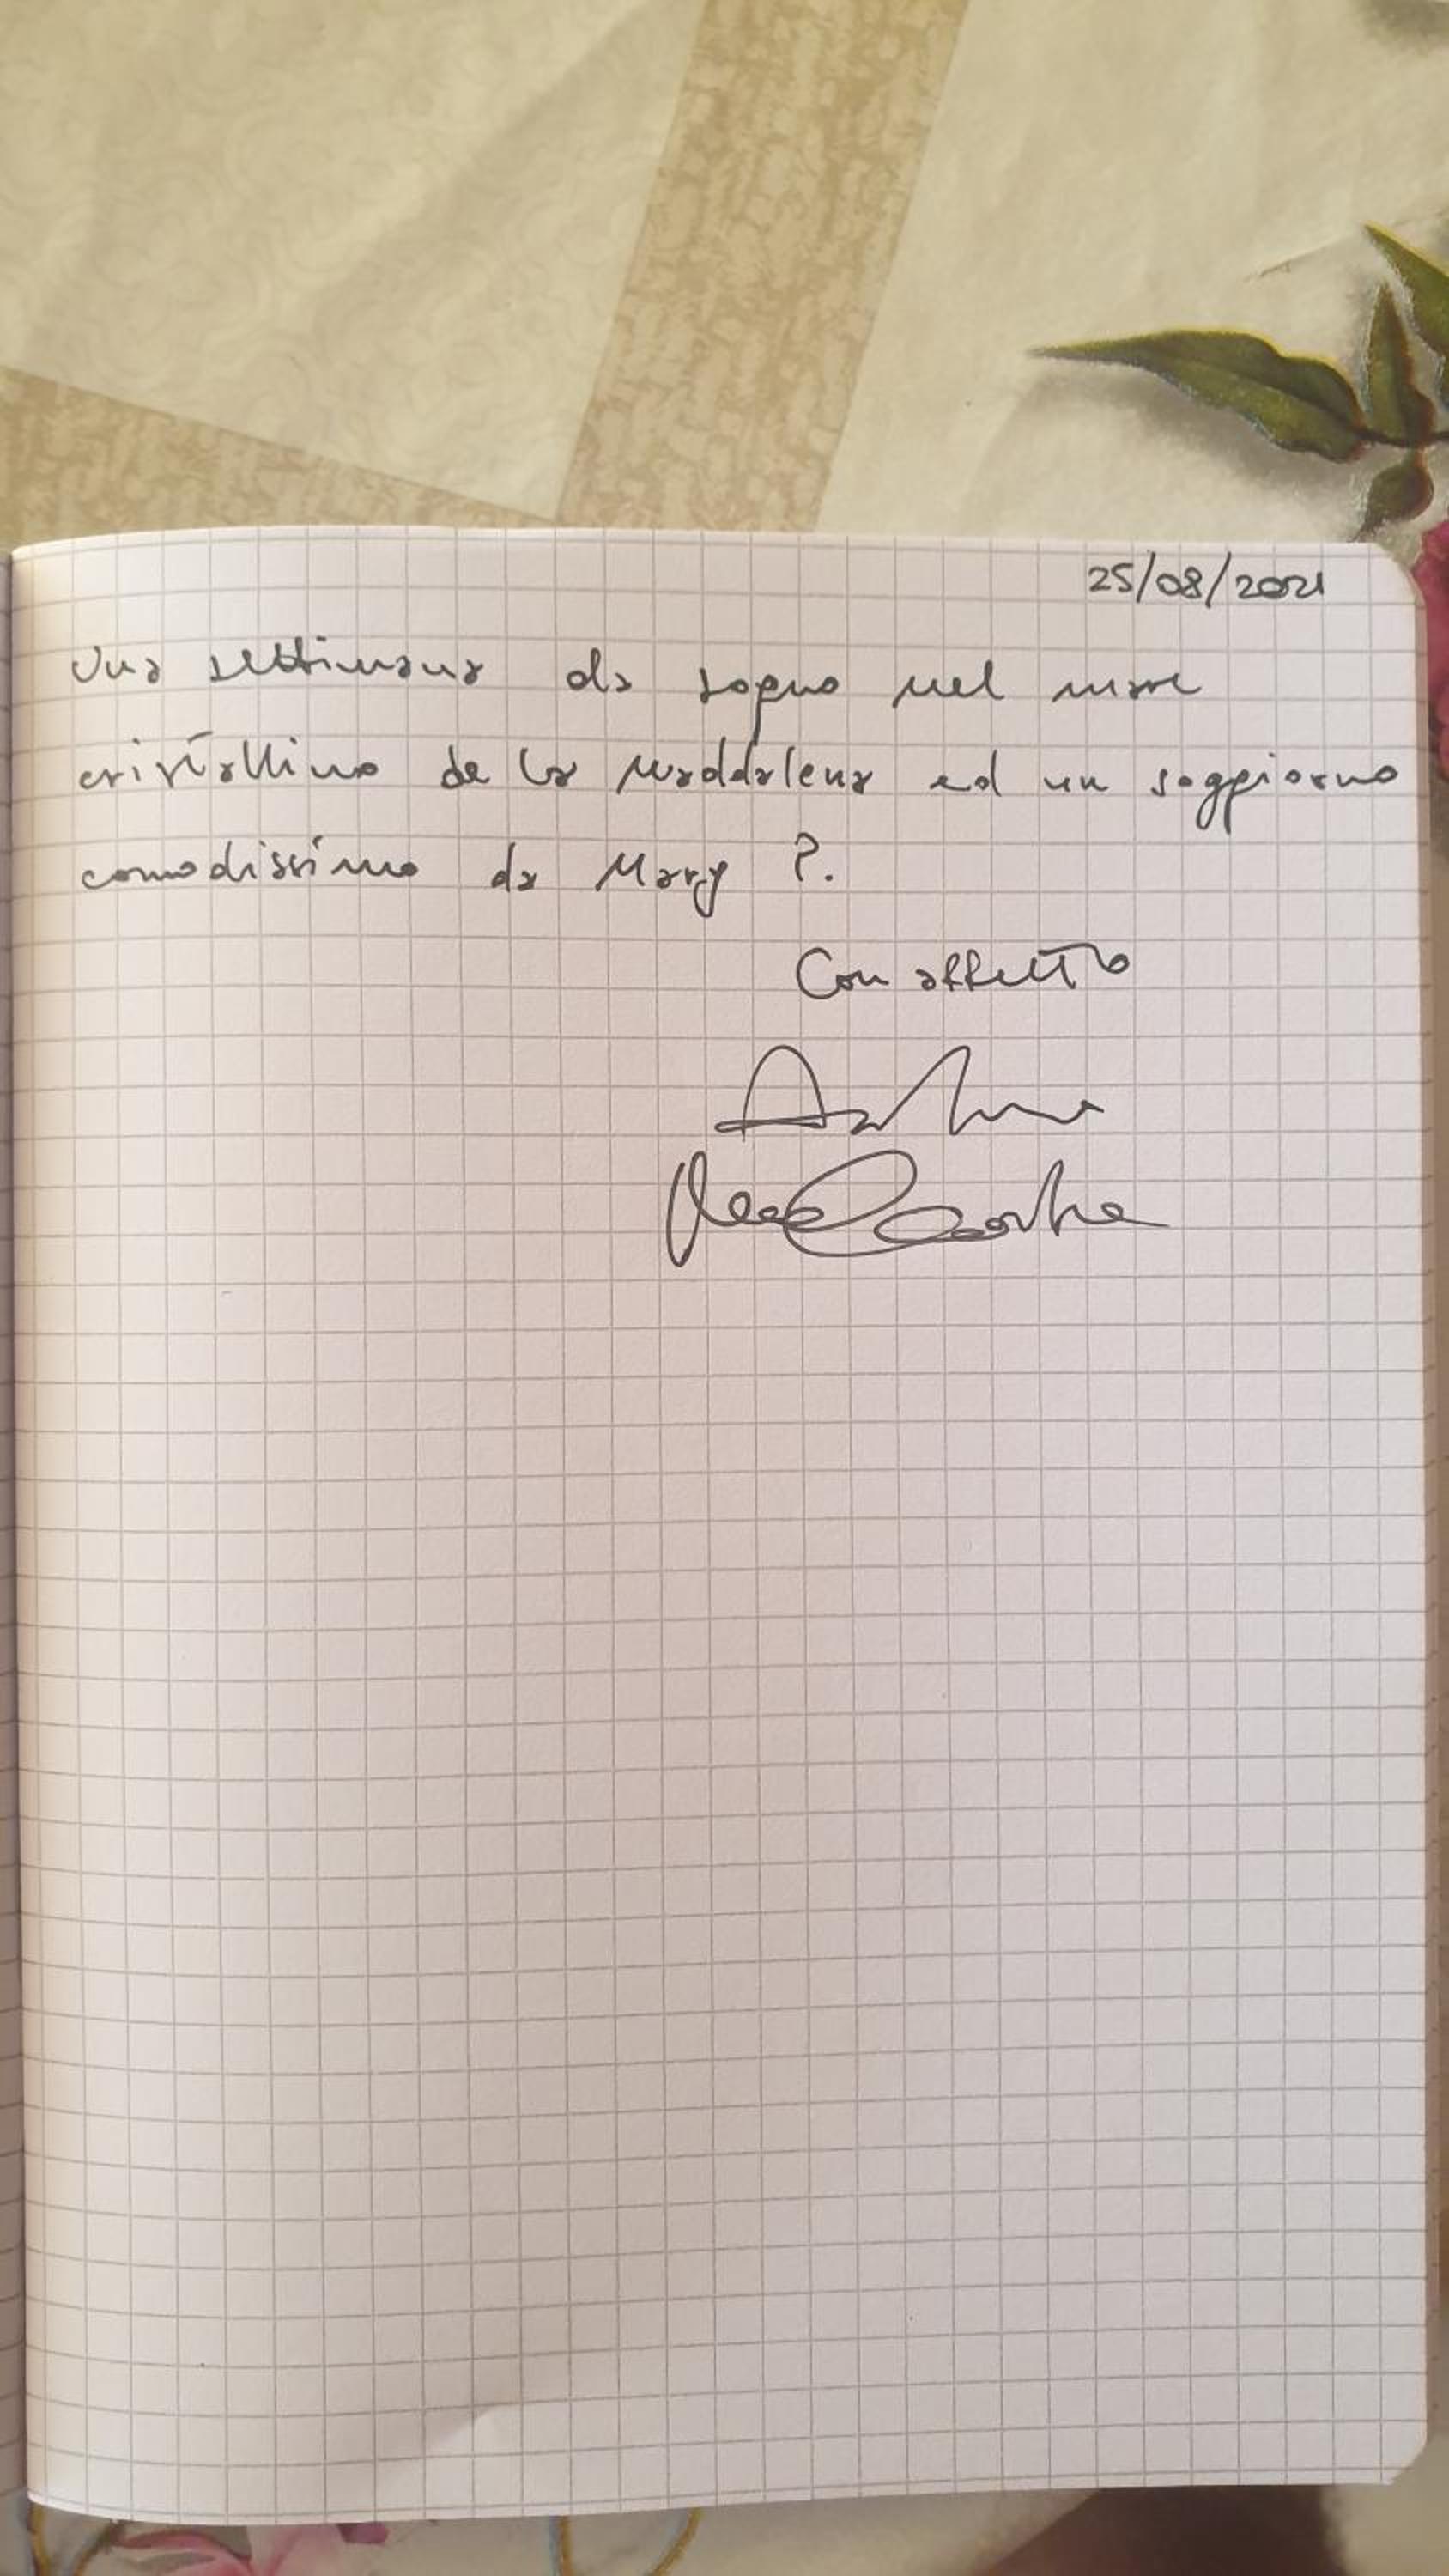 25/08/2021
Una settimana da sogno nel mare
cristallino de la Maddalena ed un soggiorno
comodissimo da Mary P.
Con affetto